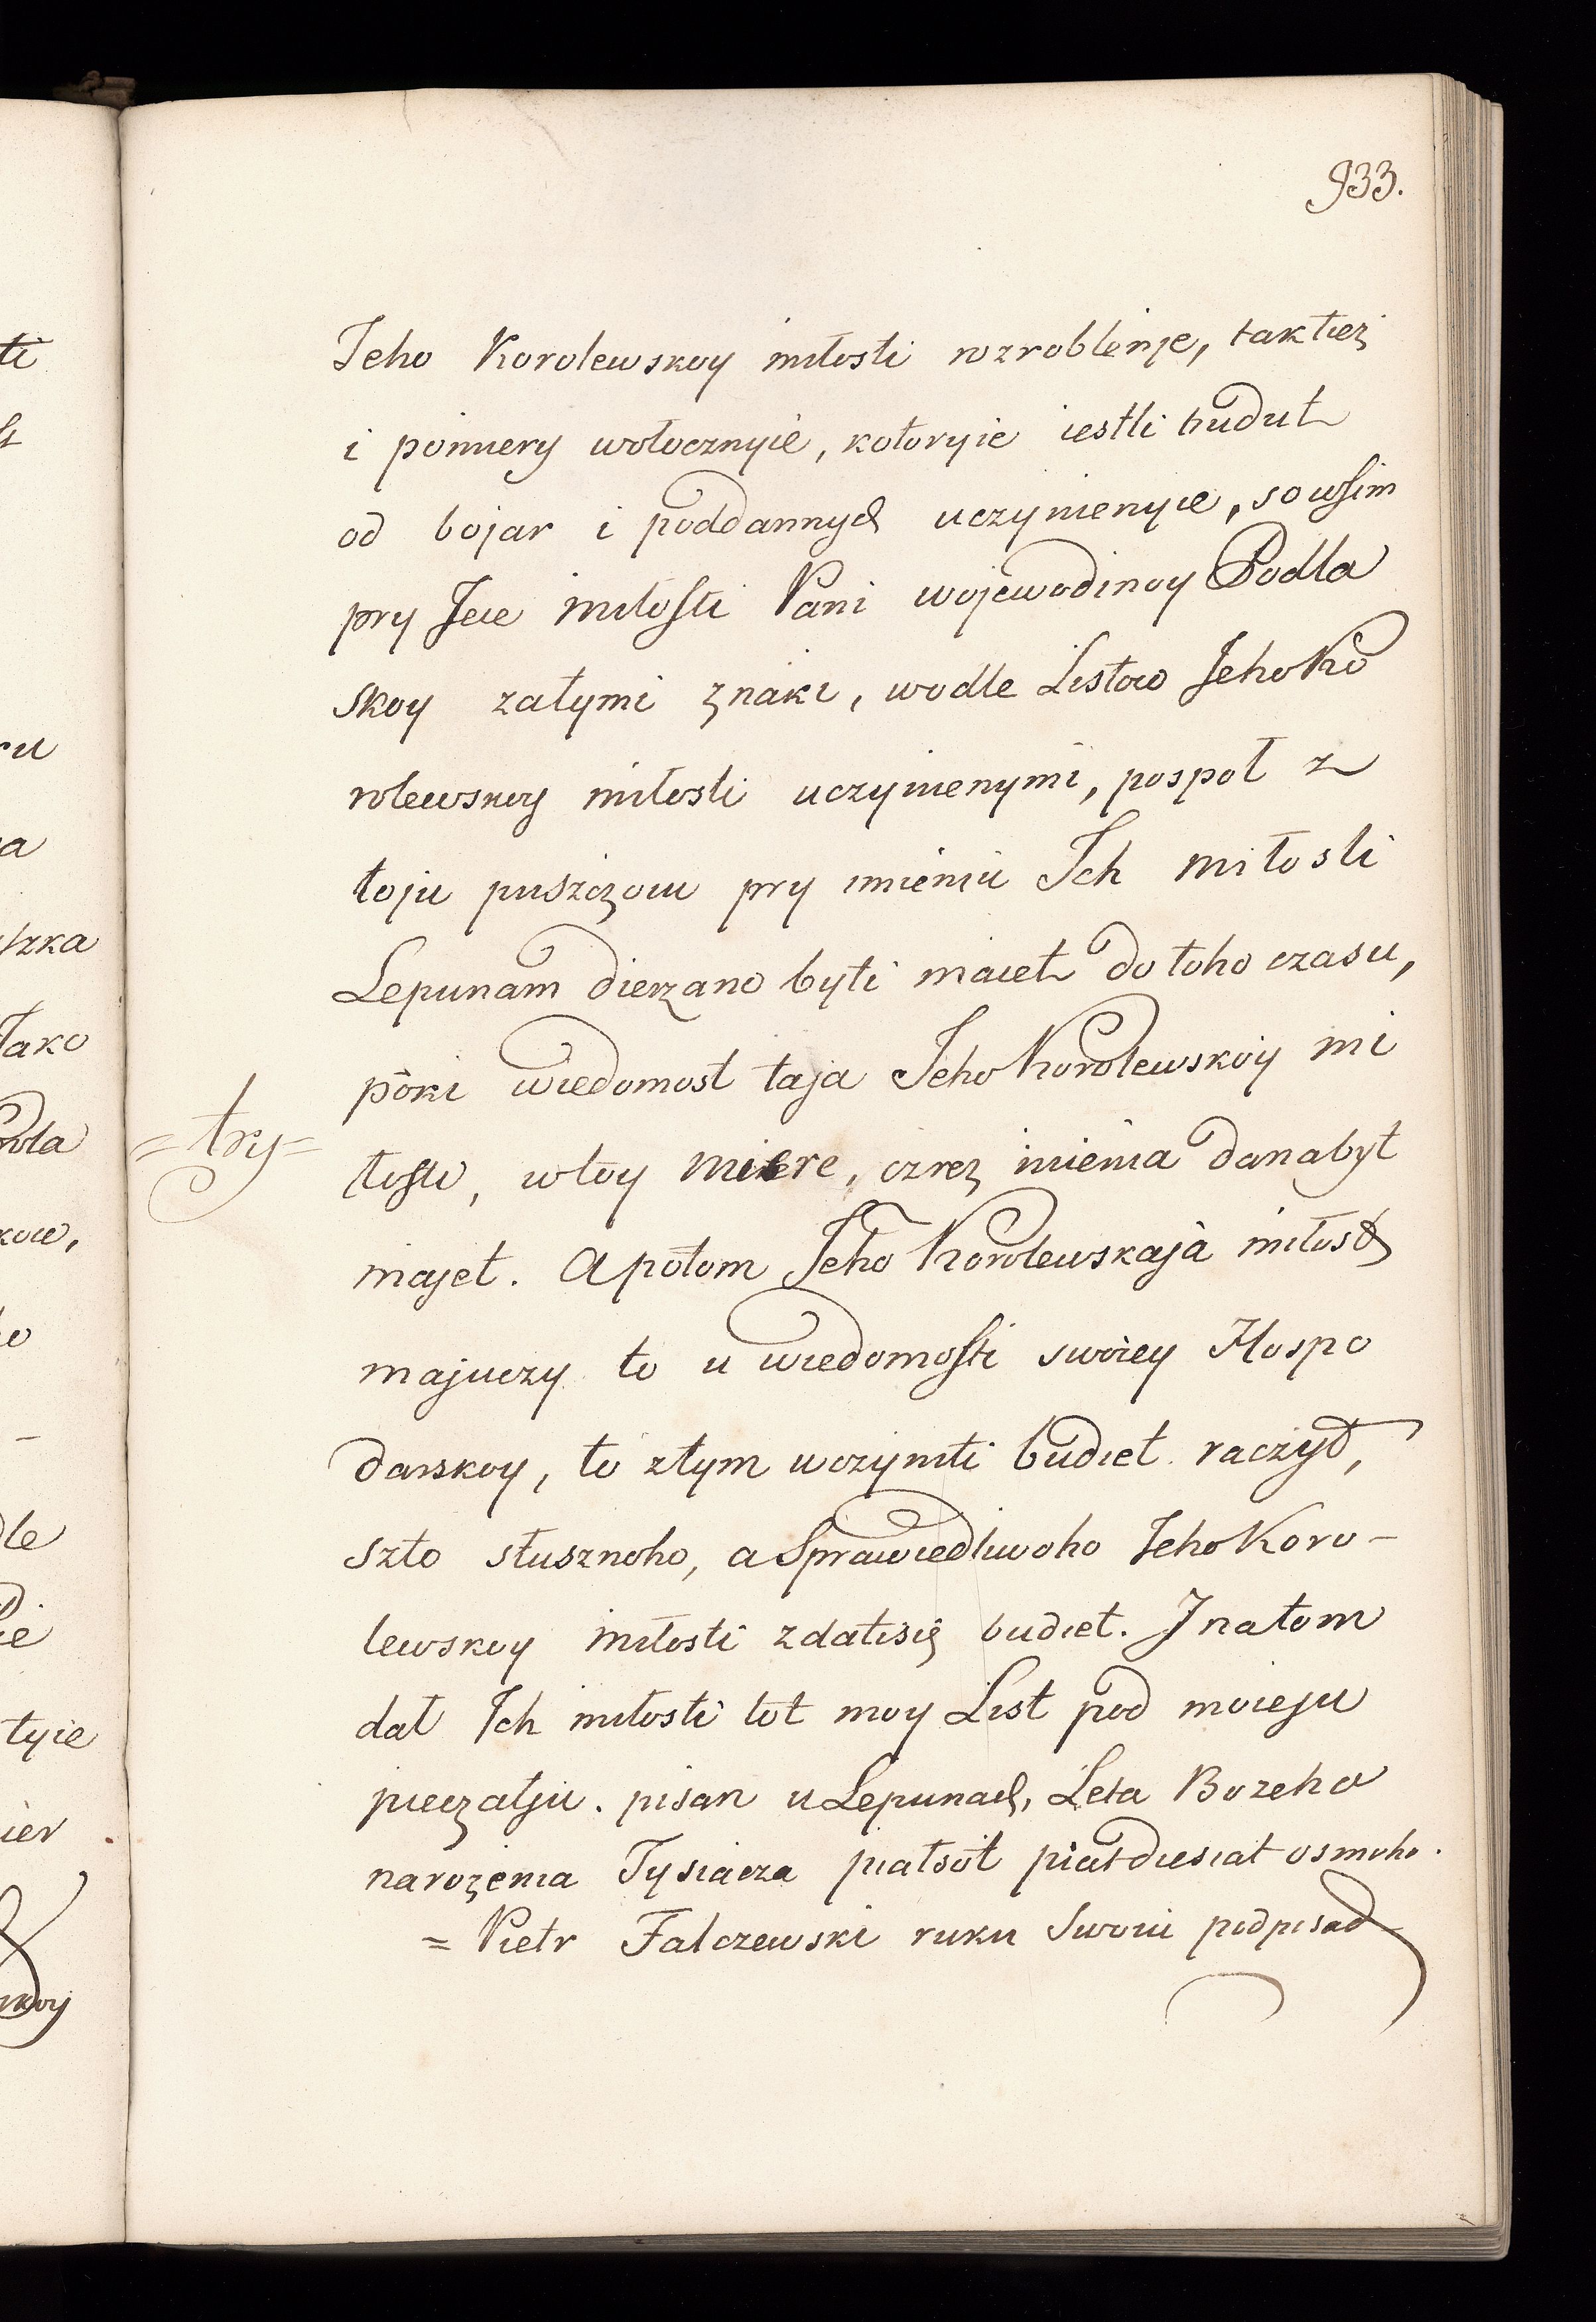 933.
Jeho Korolewskoy miłosti rozroblenje, taktież
i pomiery wołocznyie, kotoryie iestli budut
od bojar i poddannych uczynienyie, so wsim
pry Jeie miłosti Pani wojewodinoy Podla
skoy zatymi znaki, wodle Listow Jeho Ko
rolewskoy miłosti uczynienymi, pospoł z
toju puszczoiu pry imieniu Ich miłosti
Lepunam dierżano byti maiet do toho czasu,
poki wiedomost taja Jeho Korolewskoy mi
łosti, wtoy miere, czrez imienia danabyt
= try =
majet. A potom Jeho Korolewskaja miłost
majuczy to u wiedomosti swoiey Hospo
darskoy, to ztym uczyniti budiet raczył,
szto słusznoho, a Sprawiedliwoho Jeho Koro-
lewskoy miłosti zdatisię budiet. J natom
dał Ich miłosti tot moy List pod moieju
pieczatju. pisan u Lepunach, Leta Bozeho
narożenia Tysiacza piatsot piatdiesiat osmoho.
= Pietr Falczewski ruku Swoiu podpisał